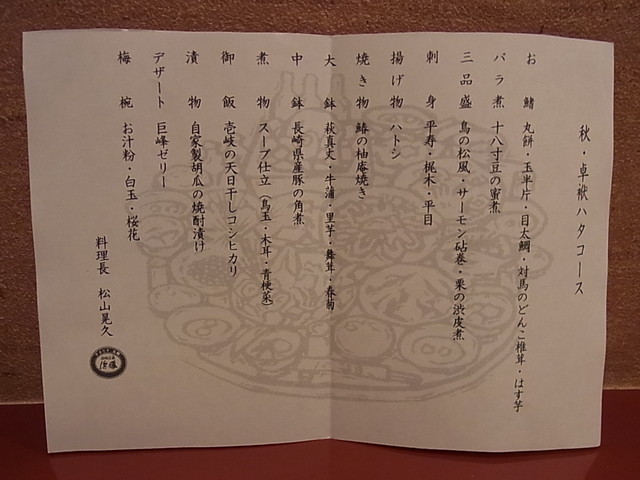 秋・卓袱ハタコース
お鰭 丸餅・玉半片・目太鯛・対馬のどんこ椎茸・はす芋
バラ煮 十八寸豆の蜜煮
三品盛 鳥の松風・サーモン砧巻・栗の渋皮煮
刺身 平寿・梶木・平目
揚げ物 ハトシ
焼き物 鰆の柚庵焼き
大鉢 萩真丈・牛蒲・里芋・舞茸・春菊
中鉢 長崎県産豚の角煮
煮物 スープ仕立（鳥玉・木耳・青梗菜）
御飯 壱岐の天日干しコシヒカリ
漬物 自家製胡瓜の焼酎漬け
デザート 巨峰ゼリー
梅椀 お汁粉・白玉・桜花
料理長 松山晃久